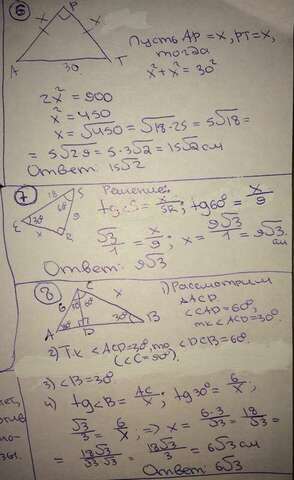 ⑥
P
x x
A 30 T
Пусть AP = x, PT = x,
тогда
x² + x² = 30²
2x² = 900
x² = 450
x = √450 = √18·25 = 5√18 =
= 5√2·9 = 5·3√2 = 15√2 см
Ответ: 15√2
⑦
18 S
60° 9
E 30°
x R
Решение:
tg<S = x/SR ; tg60° = x/9
√3/1 = x/9 ; x = 9√3/1 = 9√3 см
Ответ: 9√3
⑧
C x
6 60°
A D 30° B
1) Рассмотрим
△ACD
<CAD = 60°,
т.к <ACD = 30°.
2) Т.к <ACD = 30°, то <DCB = 60°.
(<C = 90°).
3) <B = 30°
4) tg<B = AC/x ; tg30° = 6/x ;
√3/3 = 6/x ⇒ x = 6·3/√3 = 18/√3 =
= 18√3/√3√3 = 18√3/3 = 6√3 см
Ответ 6√3